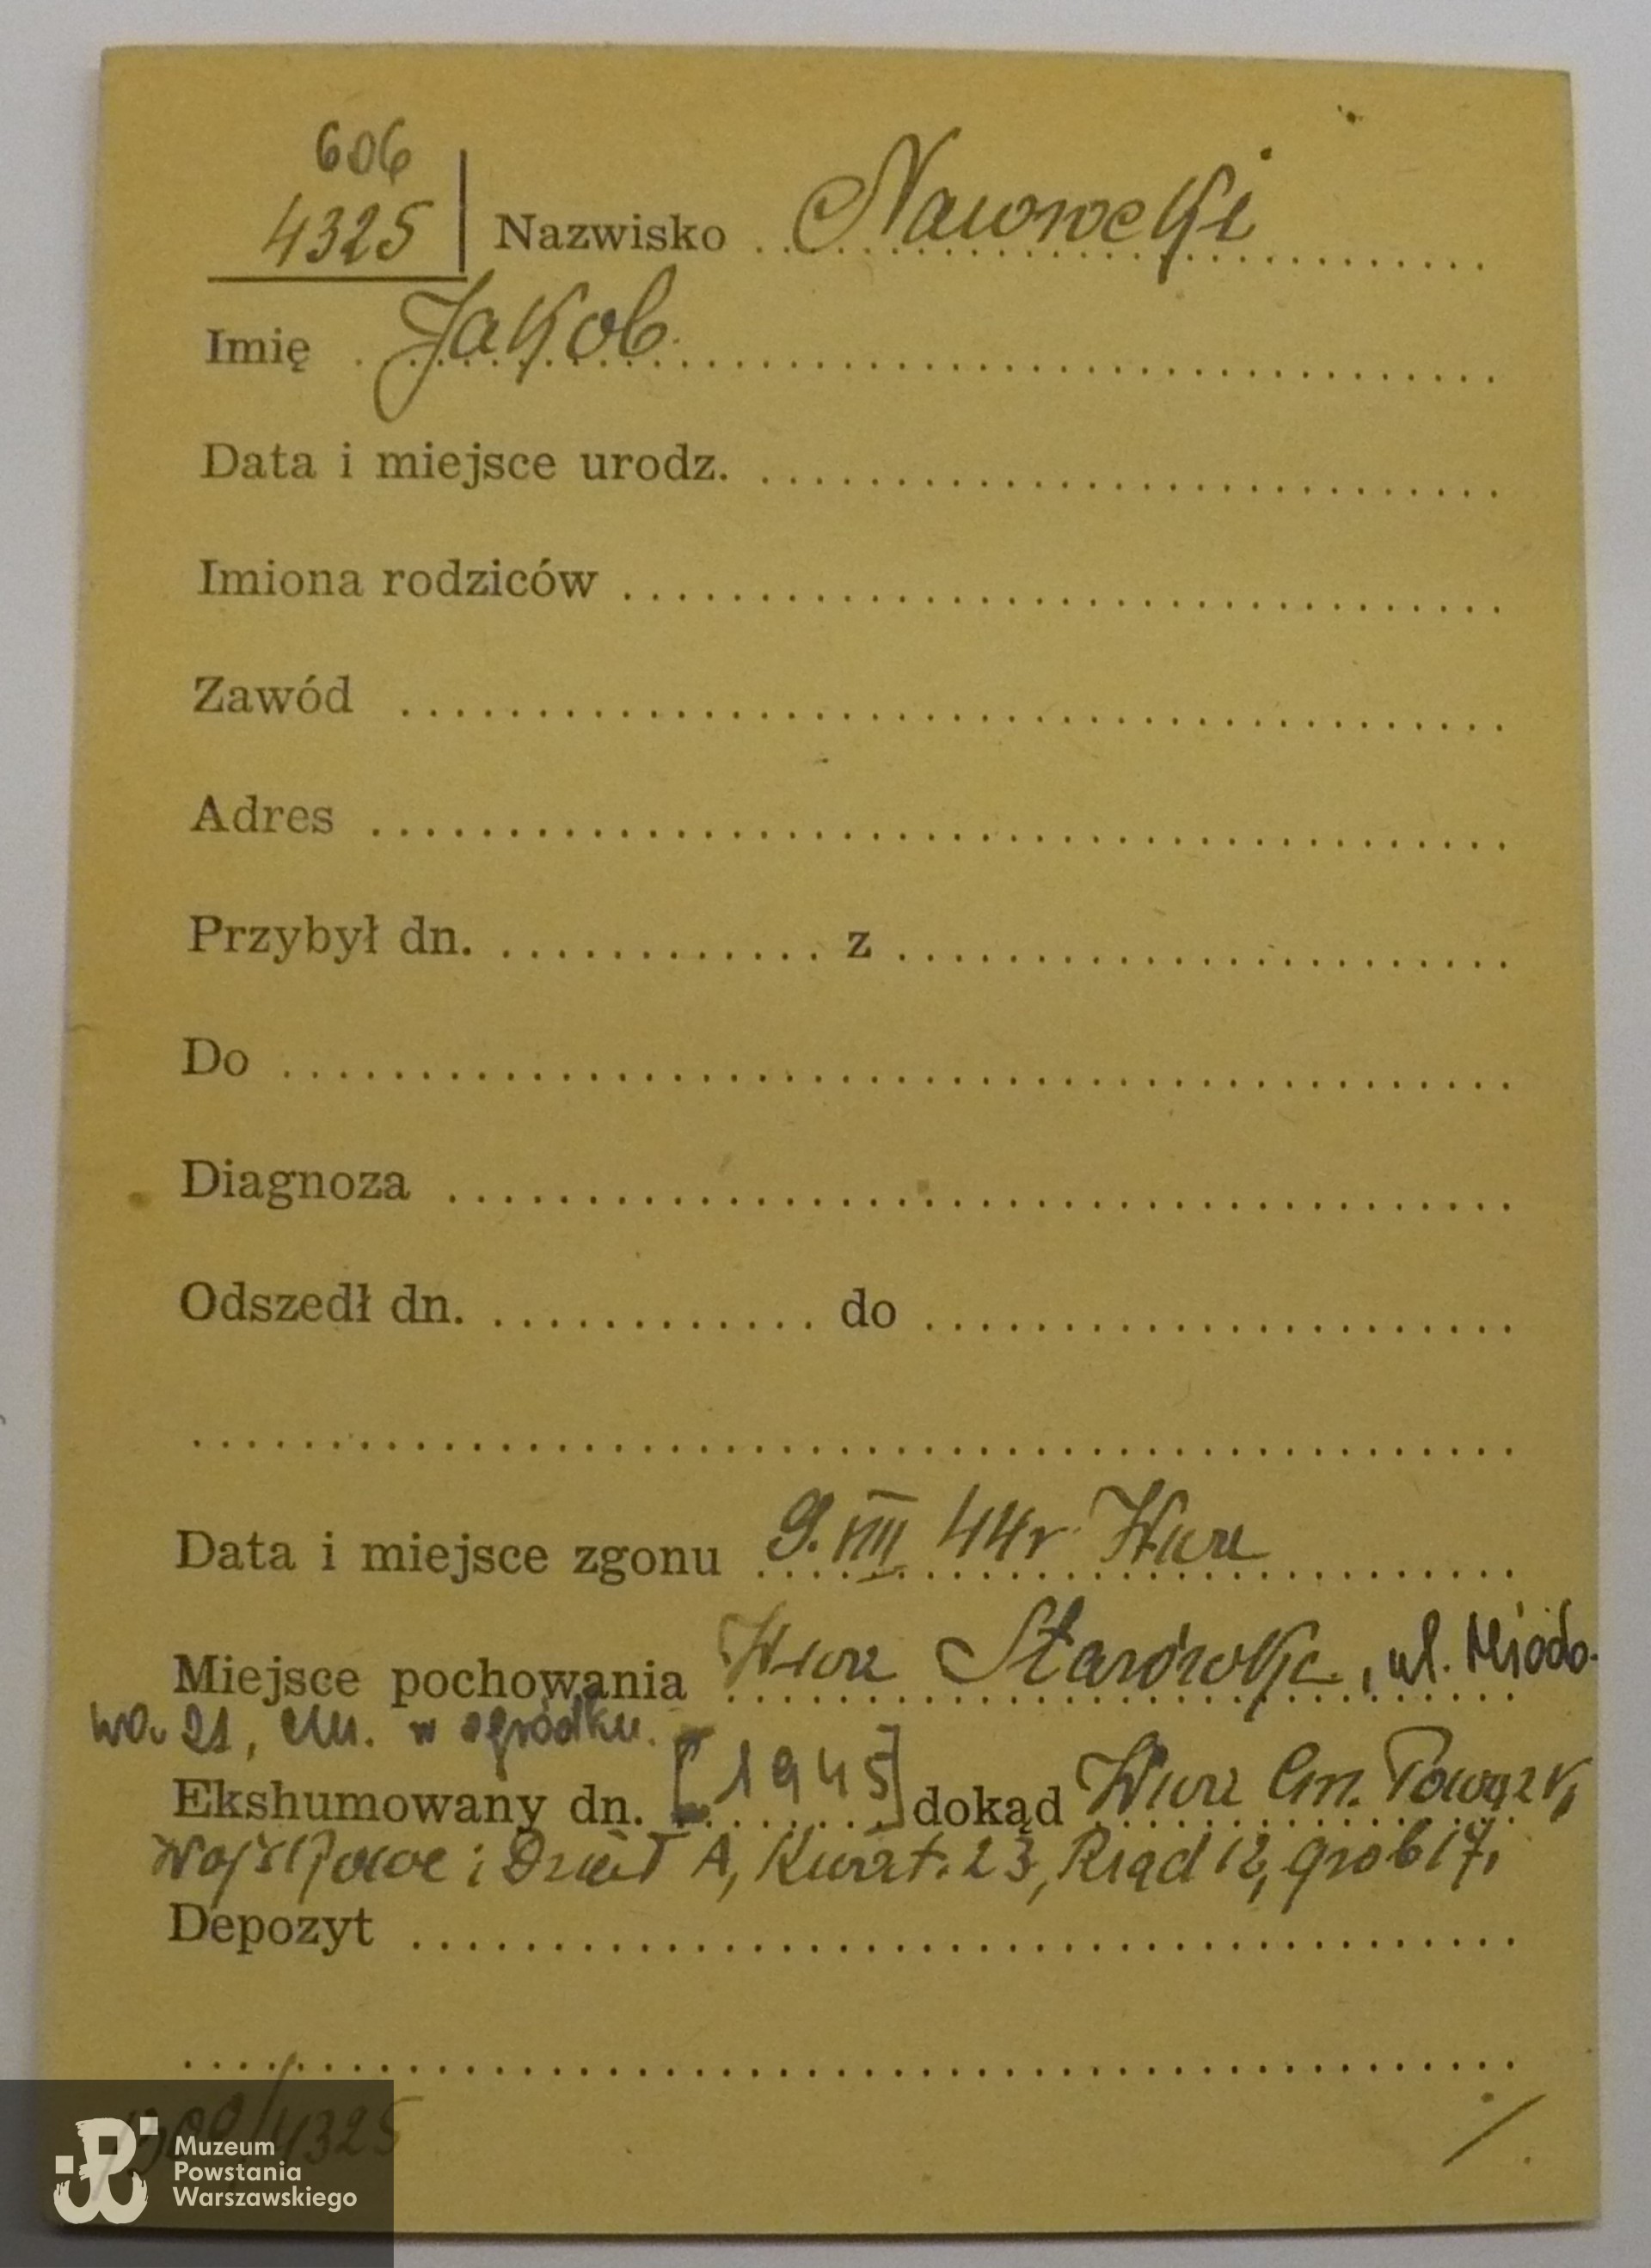 606
4325 Nazwisko Nawrocki
Imię Jakob.
Data i miejsce urodz.
Imiona rodziców
Zawód
Adres
Przybył dn. z
Do
Diagnoza
Odszedł dn. do
Data i miejsce zgonu 9. VIII 44r
Miejsce pochowania Starówka, ul. Miodo-
wa 21, w ogródku.
Ekshumowany dn. [1945] dokąd Cm. Powązk,
Wojskowe A, Kwat. 23, Rząd 12, grób 17,
Depozyt
/4325
Muzeum
Powstania
Warszawskiego